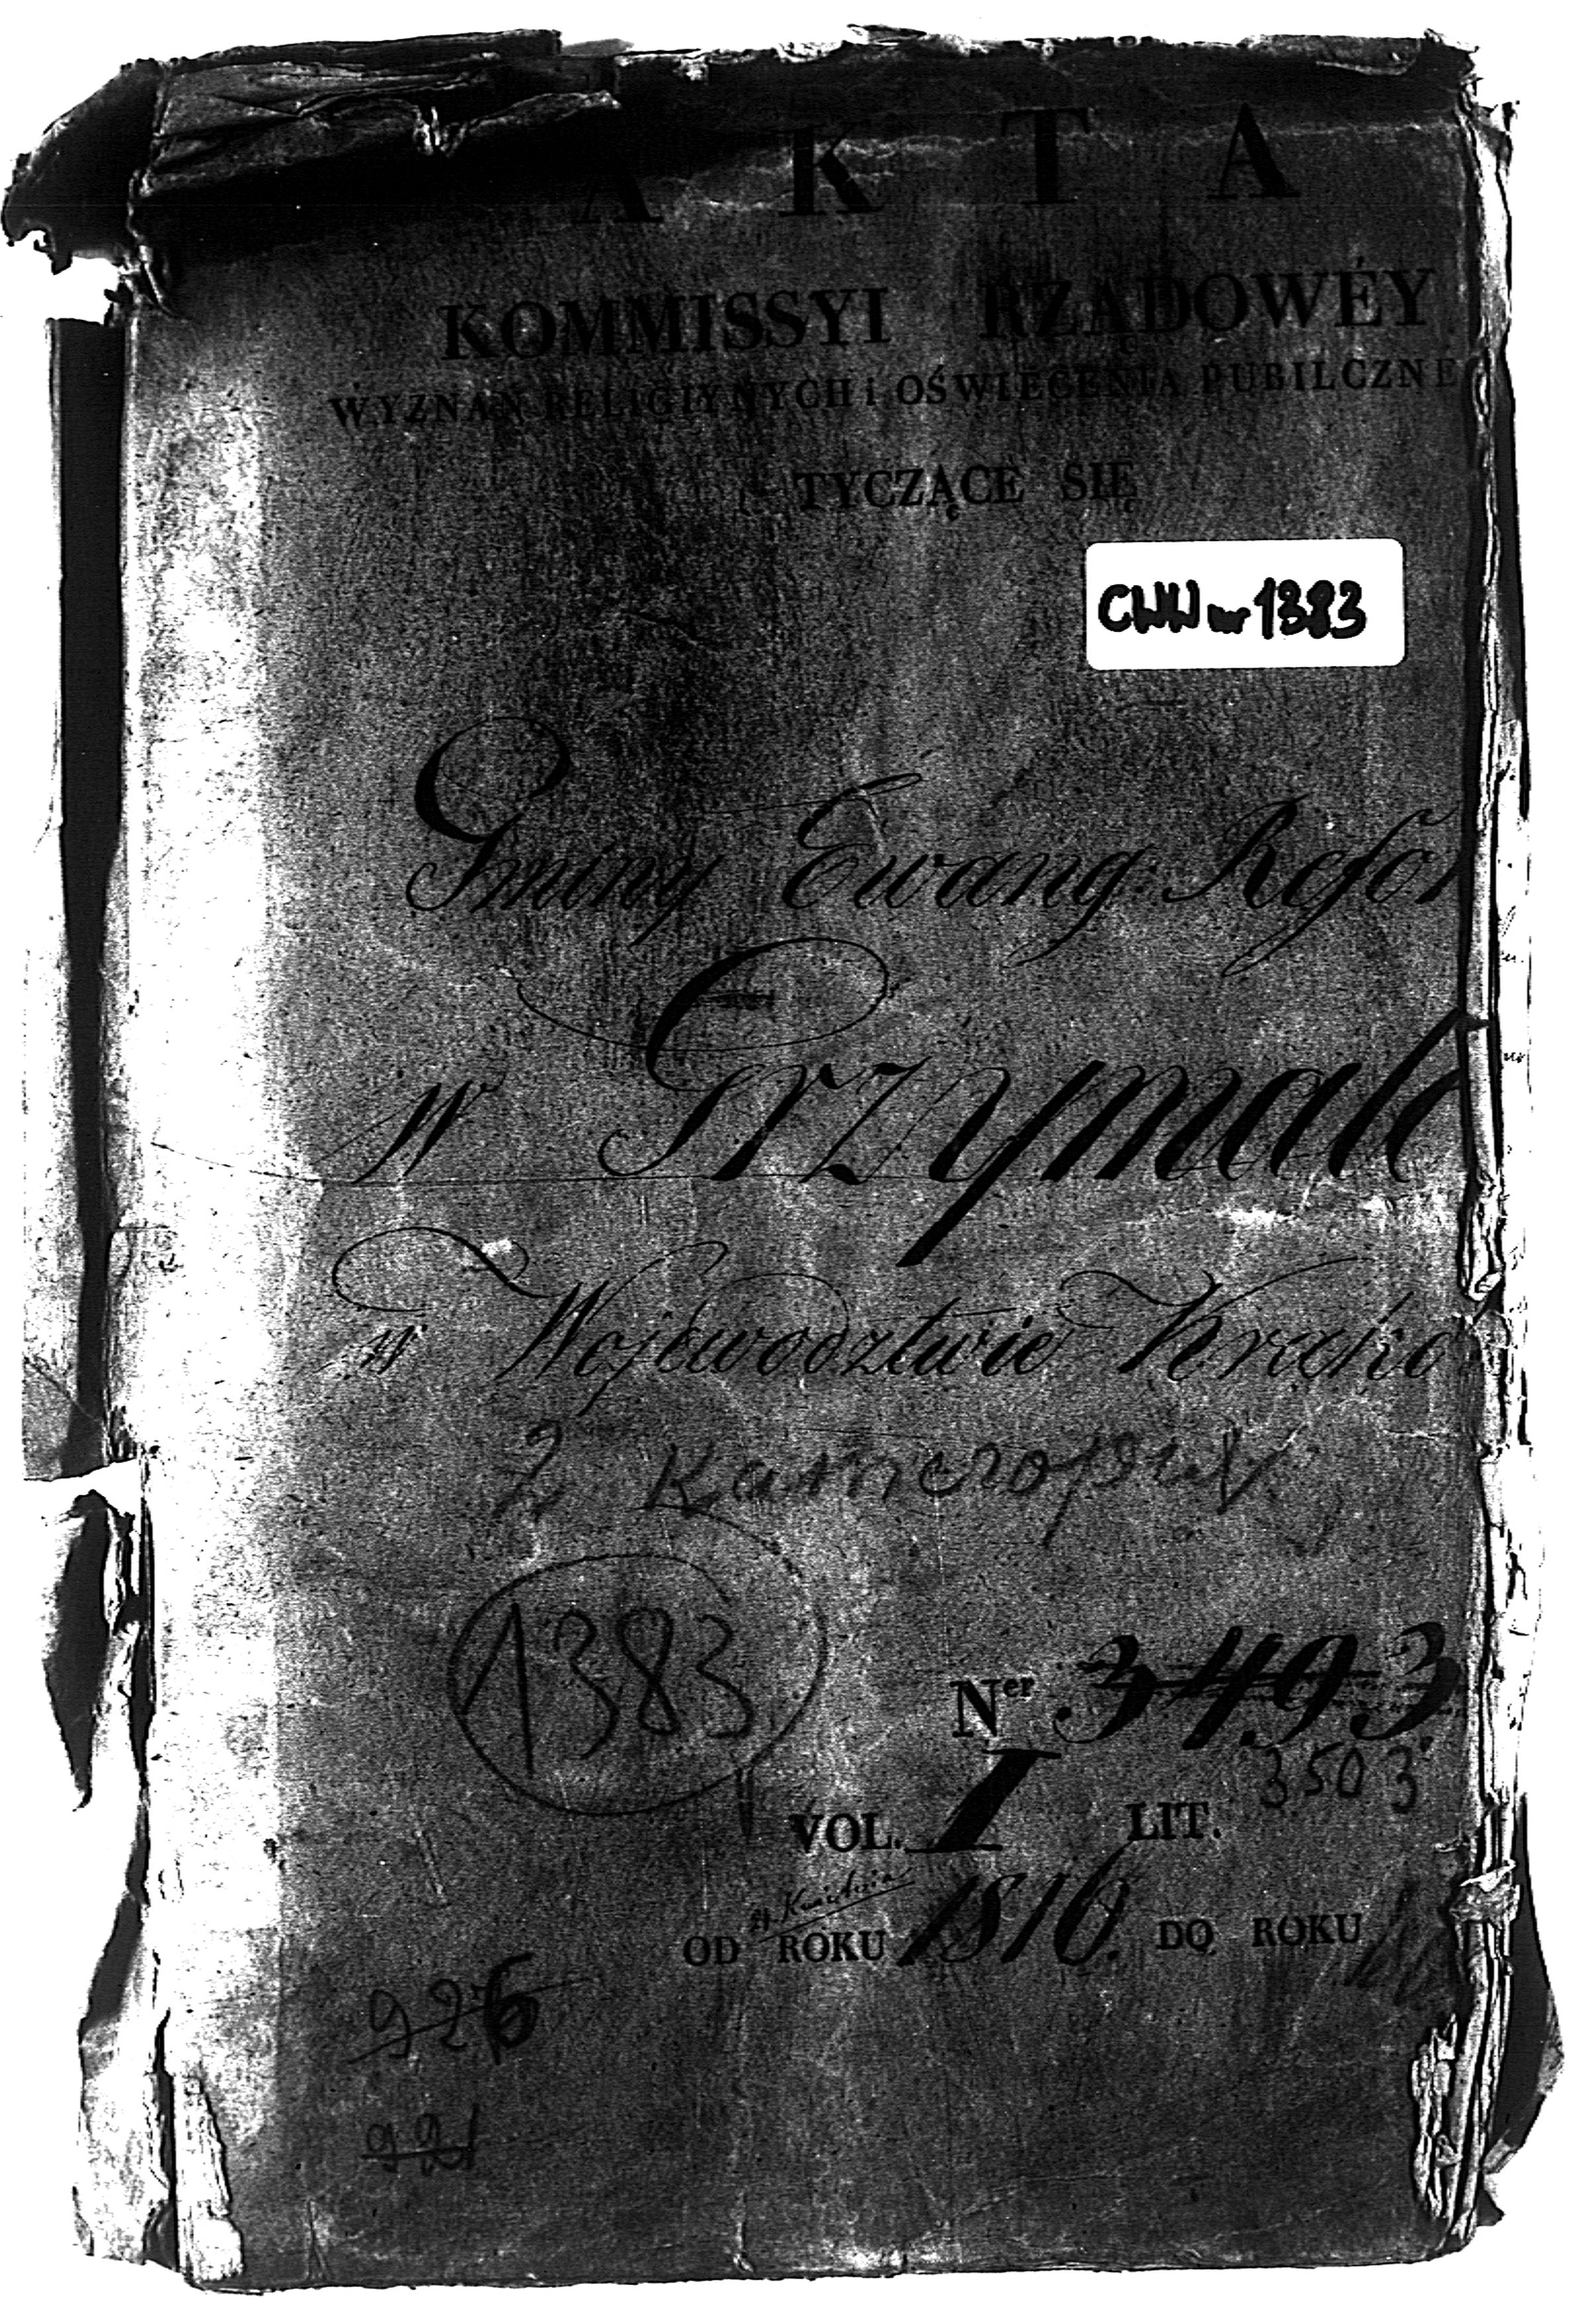 AKTA
KOMMISSYI RZĄDOWÉY
WYZNAŃ RELIGIYNYCH i OŚWIĘCENIA PUBILCZNE
TYCZĄCE SIĘ
CWW nr 1383
Gminy Ewang: Refor
w Grzymał
w Województwie Krako
z
1383
Ner 3493
3503
VOL. I LIT.
21. Kwietnia
OD ROKU 1816. DO ROKU
926
921